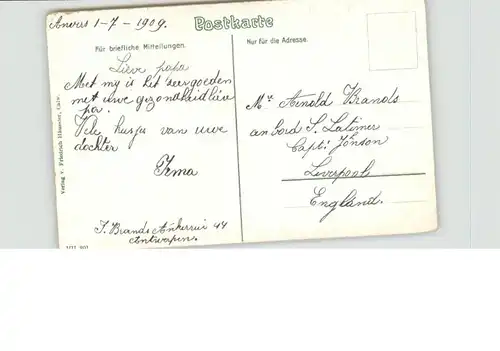 Anvers 1-7-1909.
Postkarte
Für briefliche Mitteilungen.
Nur für die Adresse.
Lieve papa
Met my is het zeer goed en
met uwe gezondheid lieve
pa.
Vele kusjes van uwe
dochter
Irma
J. Brands Ankerrui 44
Antwerpen.
Mr Arnold Brands
an bord S. Latimer
Capt: Jönson
Liverpool
England.
Verlag v. Friedrich